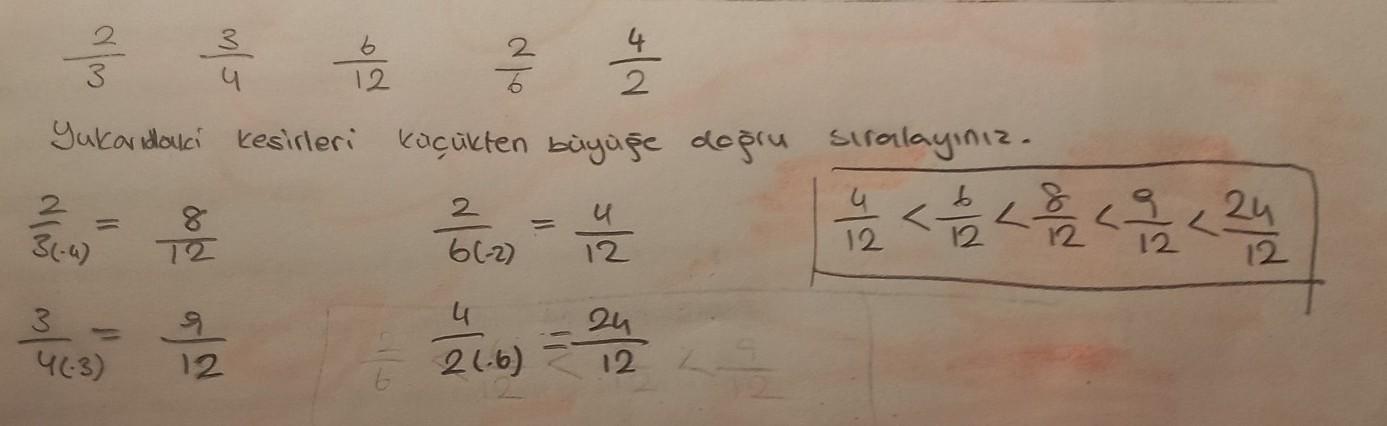 2/3 3/4 6/12 2/6 4/2
Yukarıdaki kesirleri küçükten büyüğe doğru sıralayınız.
2/3(·4) = 8/12 2/6(·2) = 4/12 4/12 < 6/12 < 8/12 < 9/12 < 24/12
3/4(·3) = 9/12 4/2(·6) = 24/12